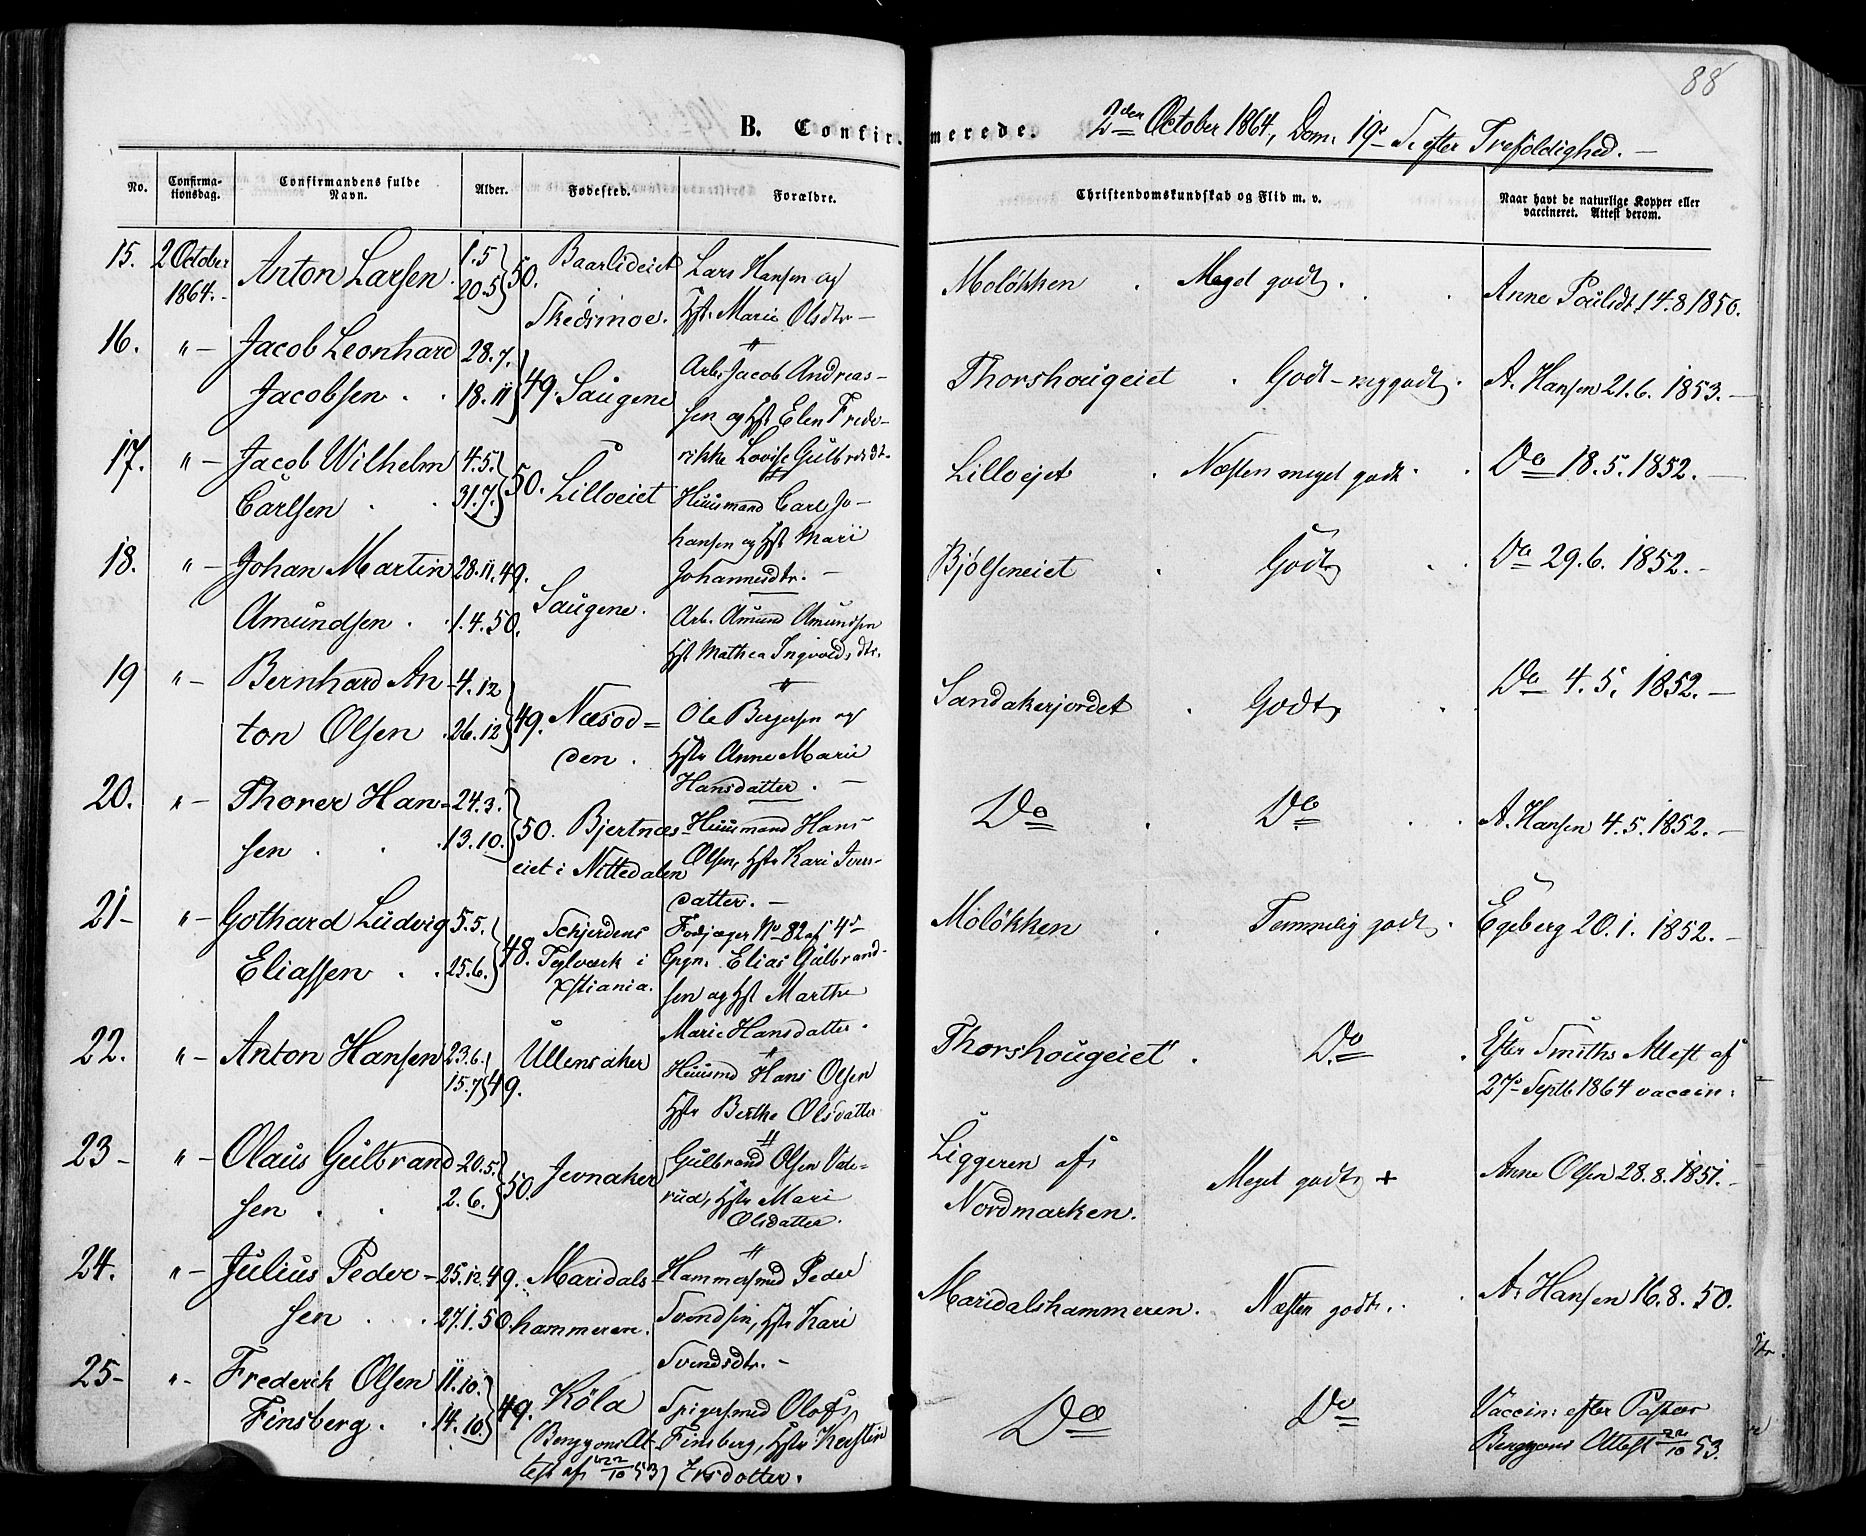 88
B. Confirmerede. 2den October 1864, Dom. 19de S. efter Trefoldighed. —
No. Confirmationsdag. Confirmandens fulde Navn. Alder. Fødested. Forældre. Christendomskundskab og Flid m. v. Naar havt de naturlige Kopper eller vaccineret. Attest derom.
15. 2 October Anton Larsen 1.5 50. Baarlideiet Lars Hansen og Moløkken . Meget godt . Anne Paulsdt. 14.8 1850.
1864. 20.5 Skedsmoe. Hst. Marie Olsdtr —
16. " — Jacob Leonhard 28.7. 49. Saugene Arb. Jacob Andreas- Thorshougeiet . Godt - meg godt . A. Hansen 21.6. 1853. —
Jacobsen . . 18.11 sen og Hst Elen Frede-
rikke Lovise Gulbrdsdt.
17. " — Jacob Wilhelm 4.5. 50. Lilloeiet Huusmand Carl Jo- Lilloejet . Næsten meget godt . Do 18.5.1852. —
Carlsen . . 31.7. hansen og Hst Mari
Johannesdtr. —
18. " — Johan Martin 28.11.49. Saugene. Arb. Amund Amundsen Bjølseneiet . Godt . Do 29.6. 1852. —
Amundsen . . 1.4.50. Hst Mathea Ingvoldsdtr.
19 " — Bernhard An- 4.12 49. Næsod= Ole Birgersen og Sandakerjordet . Godt . Do 4.5. 1852. —
ton Olsen . 26.12 den . Hstr Anne Marie
Hansdatter . —
20. " — Thorer Han- 24.3. 50. Bjertnæs- Huusmand Hans Do . Do . . A. Hansen 4.5.1852. —
sen . . 13.10. eiet i Nittedalen Olsen, Hstr Kari Ivers-
datter. —
21 — " — Gothard Ludvig 5.5. 48. Schjerdens Fodjæger No 82 af 4de Moløkken . Temmelig godt . Egeberg 20.1. 1852. —
Eliassen . . 25.6. Teglværk i Cpgn. Elias Gulbrand-
Xstiania. sen og Hst Marthe
Marie Hansdatter .
22. " — Anton Hansen 23.6. Ullensaker Huusmd Hans Olsen Thorshougeiet . Do . Efter Smiths Attest af
15.7 49. Hstr Berthe Olsdatter 27de Septb 1864 vaccin:
23 — " — Olaus Gulbrand- 20.5. 50. Jevnaker Gulbrand Olsen Liggeren af Meget godt + Anne Olsen 28.8.1851. —
sen . . 2.6. rud, Hstr Mari Nordmarken.
Olsdatter.
24. " — Julius Peder- 25.12.49. Maridals- Hammersmed Peder Maridalshammeren. Næsten godt . . A. Hansen 16.8.50.
sen . . . 27.1.50. hammeren. Svendsen, Hstr Kari
Svendsdtr. —
25 — " — Frederik Olsen 11.10. 49. Köla Spigersmed Olof Do Do Vaccin: efter Pastor
Finsberg . . 14.10. (Berggrens At- Finsberg, Hstr Kerstin Berggrens Attest 22/10 53.
test af 22/10 53) Ersdotter.